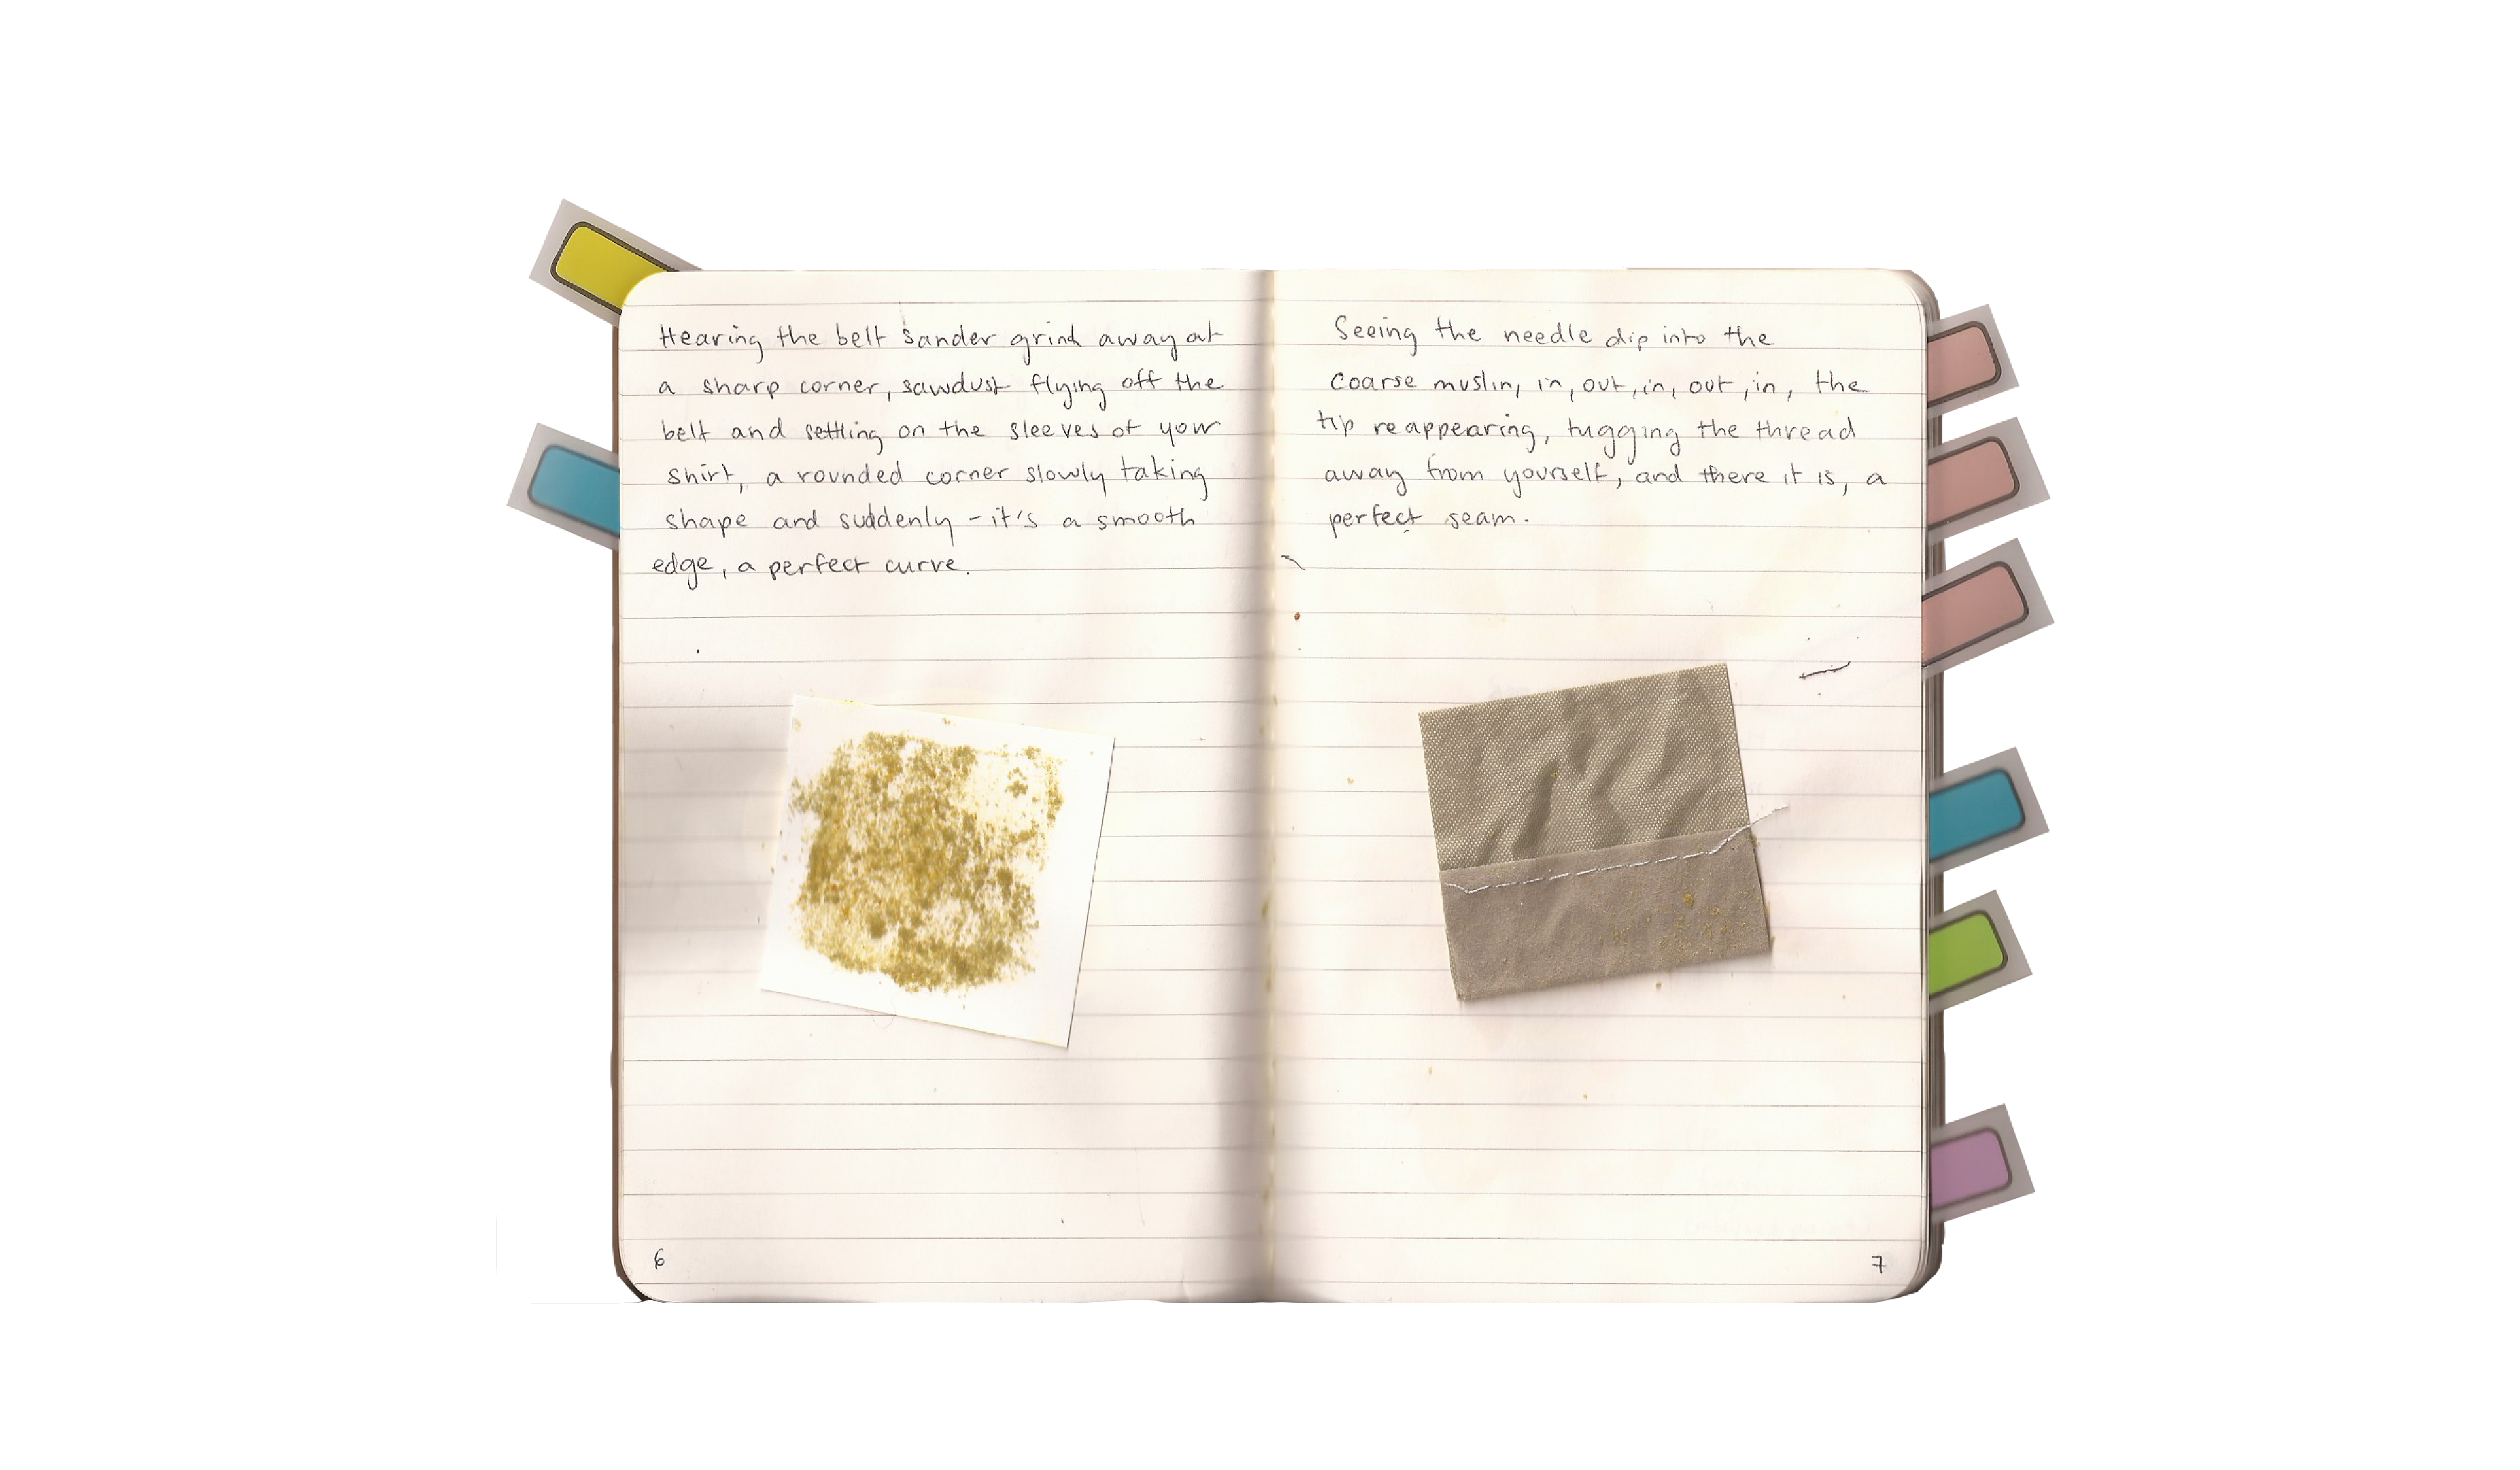 Hearing the belt sander grind away at
a sharp corner, sawdust flying off the
belt and settling on the sleeves of your
shirt, a rounded corner slowly taking
shape and suddenly - it's a smooth
edge, a perfect curve.
6
Seeing the needle dip into the
coarse muslin, in, out, in, out, in, the
tip reappearing, tugging the thread
away from yourself, and there it is, a
perfect seam.
7